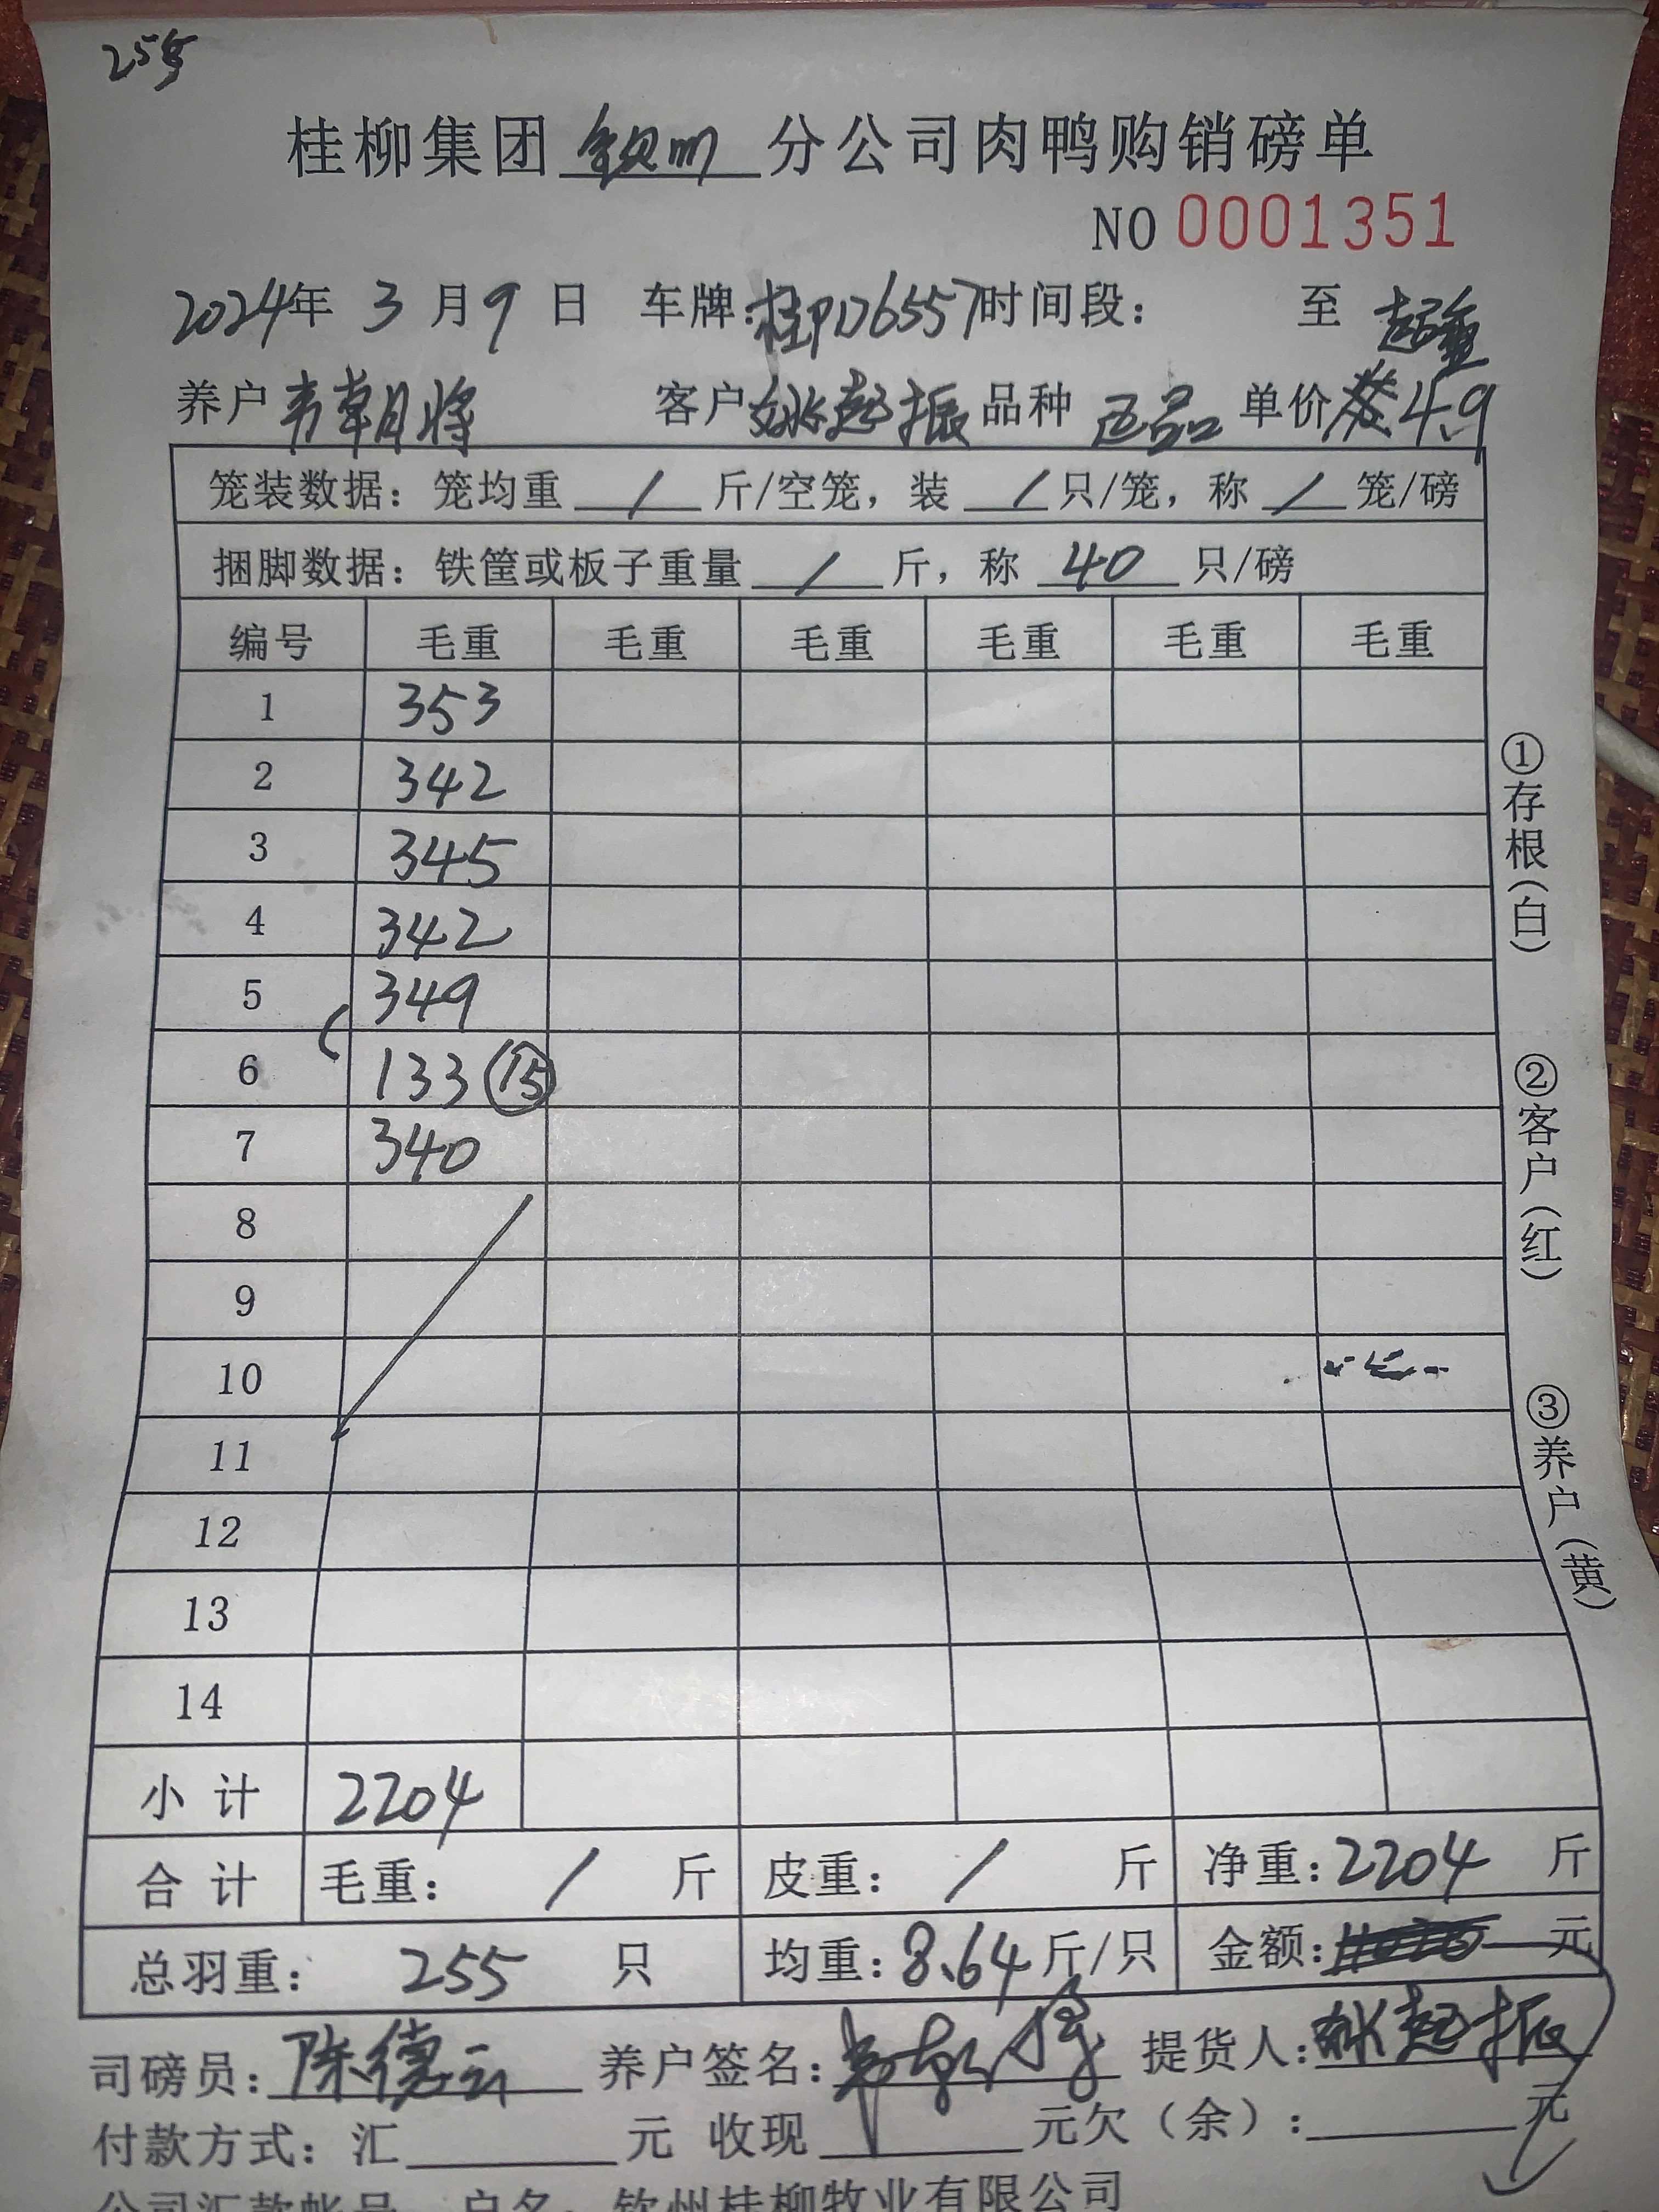 25号
桂柳集团 钦州 分公司肉鸭购销磅单
NO 0001351
2024年 3 月 9 日 车牌:桂PD6557 时间段: 至
养户 韦朝将 客户 姚起振 品种 正品 单价 4.9
笼装数据: 笼均重 / 斤/空笼, 装 / 只/笼, 称 / 笼/磅
捆脚数据: 铁筐或板子重量 / 斤, 称 40 只/磅
编号 毛重 毛重 毛重 毛重 毛重 毛重
1 353
2 342
3 345
4 342
5 349
6 133 15
7 340
8
9
10
11
12
13
14
小计 2204
合计 毛重: / 斤 皮重: / 斤 净重: 2204 斤
总羽重: 255 只 均重: 8.64 斤/只 金额: 元
司磅员: 陈德云 养户签名: 提货人: 姚起振
付款方式: 汇 元 收现 元欠(余): 元
公司汇款帐号 户名: 钦州桂柳牧业有限公司
①存根(白)
②客户(红)
③养户(黄)